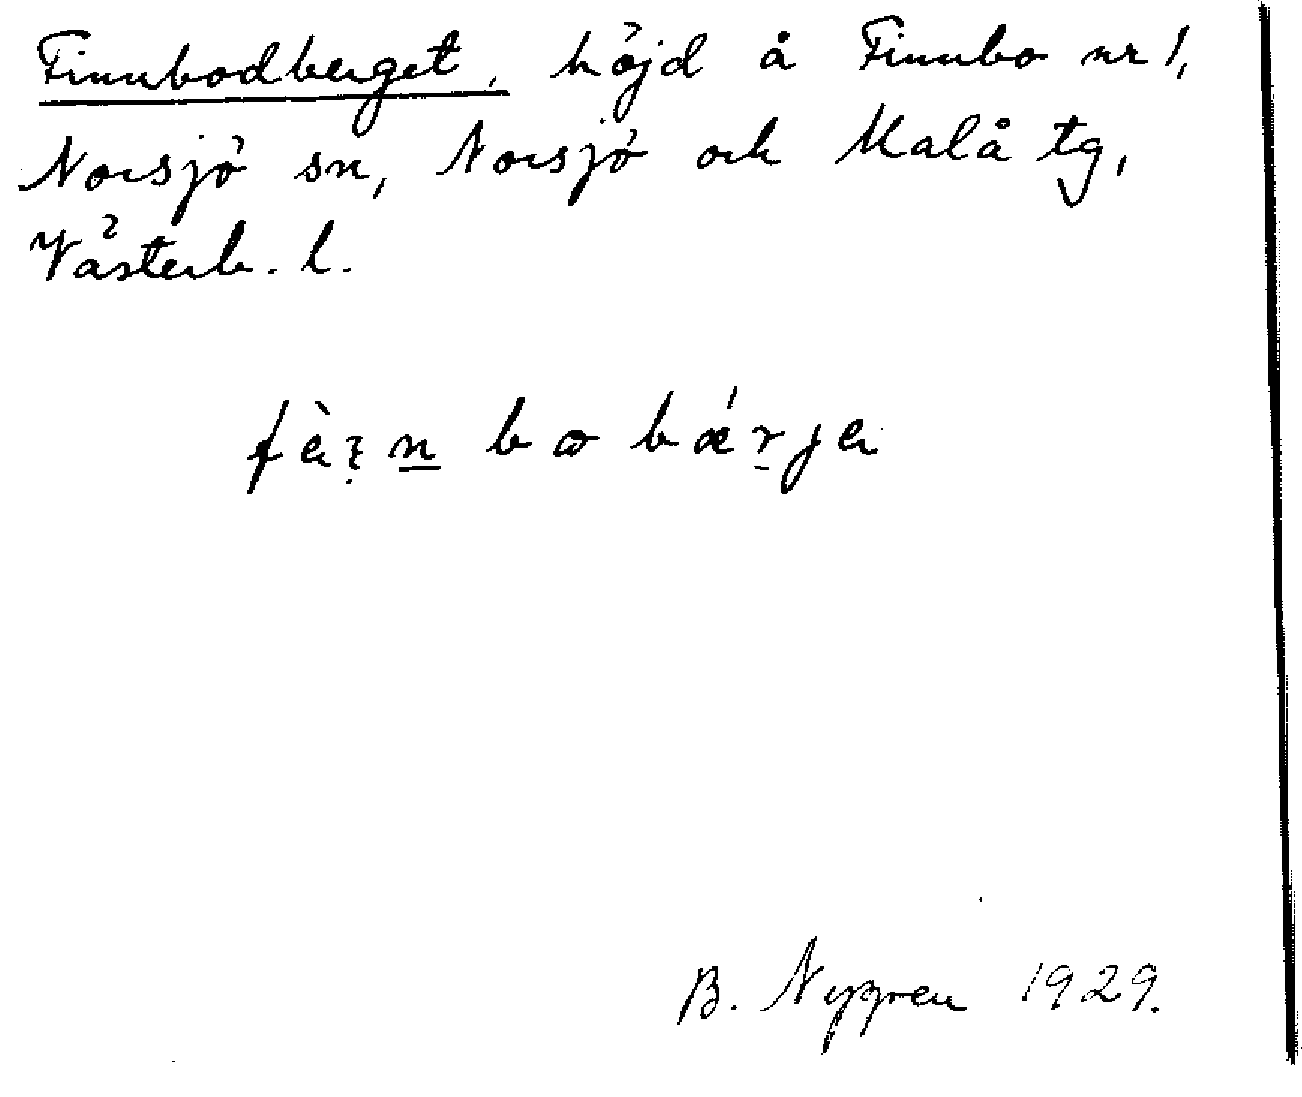 Finnbodberget, höjd å Finnbo nr 1,
Norsjö sn, Norsjö och Malå tg,
Västerb. l.
B. Nygren 1929.